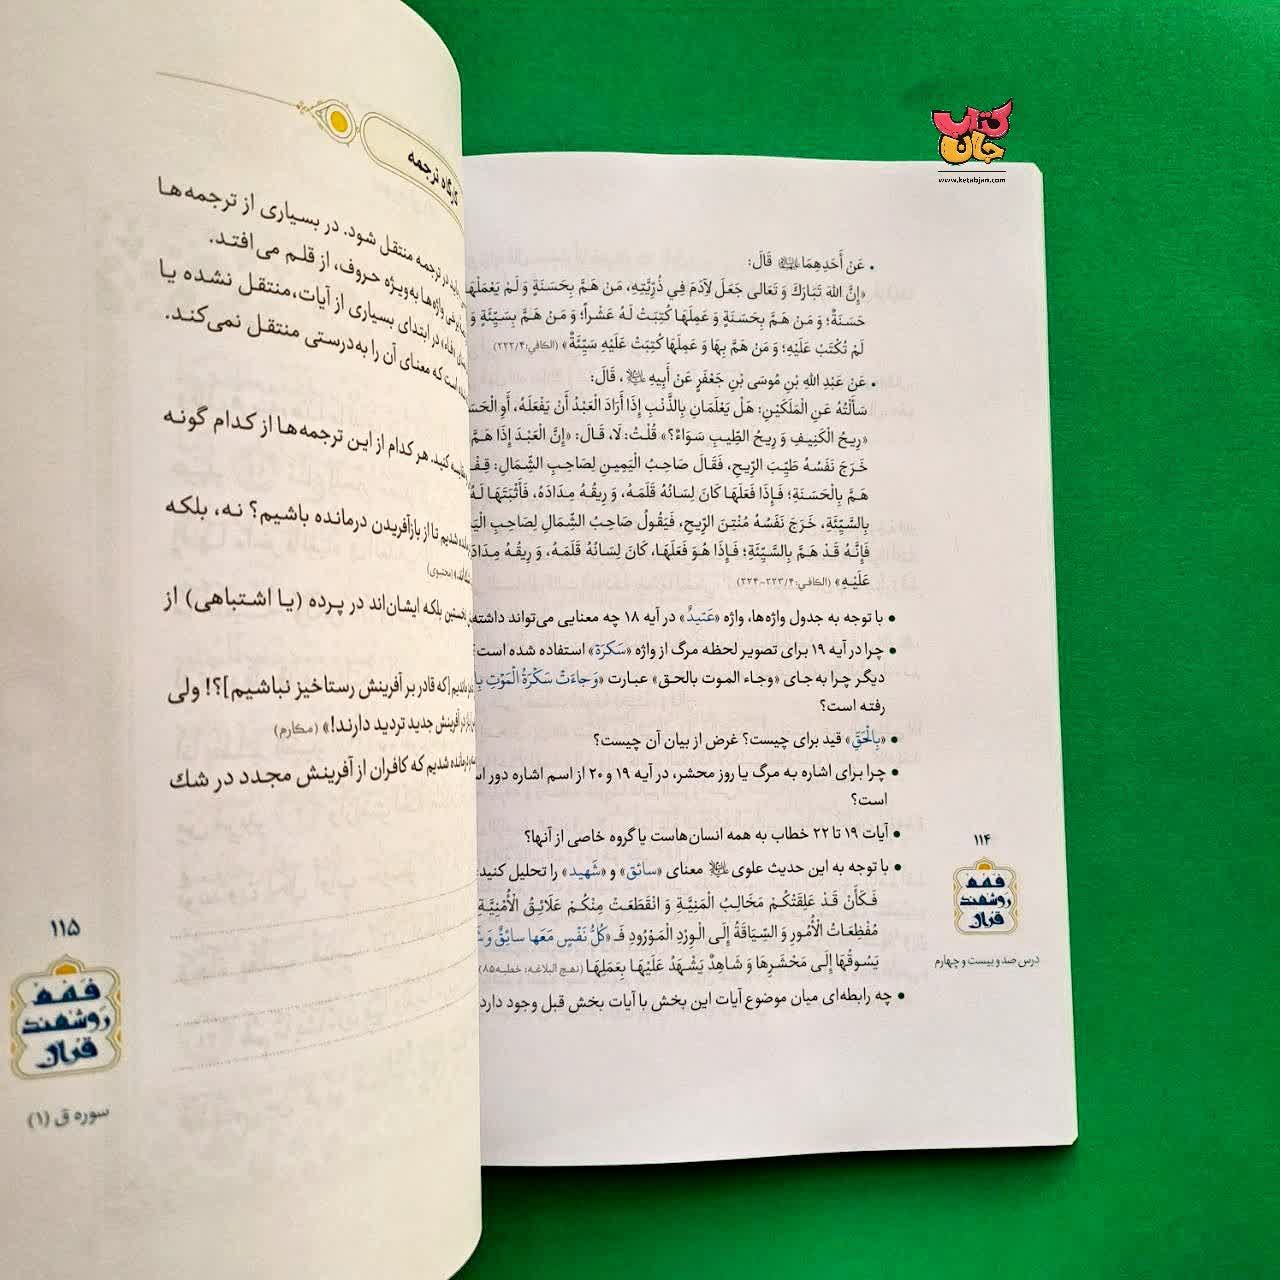 کتاب
جان
www.ketabjan.com
• عَنْ أَحَدِهِمَا قَالَ:
«إِنَّ اللهَ تَبَارَكَ وَ تَعَالى جَعَلَ لِآدَمَ فِي ذُرِّيَّتِهِ، مَن هَمَّ بِحَسَنَةٍ وَ لَمْ يَعْمَلْهَا
حَسَنَةٌ؛ وَ مَنْ هَمَّ بِحَسَنَةٍ وَ عَمِلَهَا كُتِبَتْ لَهُ عَشْراً؛ وَ مَنْ هَمَّ بِسَيِّئَةٍ وَ
لَمْ تُكْتَبْ عَلَيْهِ؛ وَ مَنْ هَمَّ بِهَا وَ عَمِلَهَا كُتِبَتْ عَلَيْهِ سَيِّئَةٌ» (الکافي:۲۲۲/۴)
• عَنْ عَبْدِ اللهِ بْنِ مُوسَى بْنِ جَعْفَرٍ عَنْ أَبِيهِ ، قَالَ:
سَأَلْتُهُ عَنِ الْمَلَكَيْنِ: هَلْ يَعْلَمَانِ بِالذَّنْبِ إِذَا أَرَادَ الْعَبْدُ أَنْ يَفْعَلَهُ، أَوِ
«رِيحُ الْكَنِيفِ وَ رِيحُ الطِّيبِ سَوَاءٌ؟» قُلْتُ: لَا، قَالَ: «إِنَّ الْعَبْدَ إِذَا هَمَّ
خَرَجَ نَفَسُهُ طَيِّبَ الرِّيحِ، فَقَالَ صَاحِبُ الْيَمِينِ لِصَاحِبِ الشِّمَالِ:
هَمَّ بِالْحَسَنَةِ؛ فَإِذَا فَعَلَهَا كَانَ لِسَانُهُ قَلَمَهُ، وَ رِيقُهُ مِدَادَهُ، فَأَثْبَتَهَا
بِالسَّيِّئَةِ، خَرَجَ نَفَسُهُ مُنْتِنَ الرِّيحِ، فَيَقُولُ صَاحِبُ الشِّمَالِ لِصَاحِبِ
فَإِنَّهُ قَدْ هَمَّ بِالسَّيِّئَةِ؛ فَإِذَا هُوَ فَعَلَهَا، كَانَ لِسَانُهُ قَلَمَهُ، وَ رِيقُهُ
عَلَيْهِ» (الکافي:۲۲۳/۴-۲۲۴)
• با توجه به جدول واژه‌ها، واژه «عَتیدٌ» در آیه ۱۸ چه معنایی می‌تواند داشته
• چرا در آیه ۱۹ برای تصویر لحظه مرگ از واژه «سَکرَة» استفاده شده است؟
دیگر چرا به‌جای «وجاء الموت بالحق» عبارت «وَجاءَتْ سَكْرَةُ الْمَوْتِ
رفته است؟
• «بِالْحَقِّ» قید برای چیست؟ غرض از بیان آن چیست؟
• چرا برای اشاره به مرگ یا روز محشر، در آیه ۱۹ و ۲۰ از اسم اشاره دور
است؟
• آیات ۱۹ تا ۲۲ خطاب به همه انسان‌هاست یا گروه خاصی از آنها؟
• با توجه به این حدیث علوی معنای «سائق» و «شَهید» را تحلیل کنید:
فَكَأَنْ قَدْ عَلِقَتْكُمْ مَخَالِبُ الْمَنِيَّةِ وَ انْقَطَعَتْ مِنْكُمْ عَلَائِقُ الْأُمْنِيَّةِ
مُفْظِعَاتُ الْأُمُورِ وَ السِّيَاقَةُ إِلَى الْوِرْدِ الْمَوْرُودِ فَـ «كُلُّ نَفْسٍ مَعَها سائِقٌ وَ
يَسُوقُهَا إِلَى مَحْشَرِهَا وَ شَاهِدٌ يَشْهَدُ عَلَيْهَا بِعَمَلِهَا (نهج البلاغه: خطبه۸۵)
• چه رابطه‌ای میان موضوع آیات این بخش با آیات بخش قبل وجود دارد
۱۱۴
فهم
روشمند
قرآن
درس صد و بیست و چهارم
کارگاه ترجمه
در ترجمه منتقل شود. در بسیاری از ترجمه‌ها
برخی واژه‌ها به‌ویژه حروف، از قلم می‌افتد.
«فاء» در ابتدای بسیاری از آیات، منتقل نشده یا
است که معنای آن را به‌درستی منتقل نمی‌کند.
کنید. هر کدام از این ترجمه‌ها از کدام گونه
شدیم تا از بازآفریدن درمانده باشیم؟ نه، بلکه
(مجتبوی)
نخستین بلکه ایشان‌اند در پرده (یا اشتباهی) از
[که قادر بر آفرینش رستاخیز نباشیم]؟! ولی
در آفرینش جدید تردید دارند!» (مکارم)
درمانده شدیم که کافران از آفرینش مجدد در شك
۱۱۵
فهم
روشمند
قرآن
سوره ق (۱)